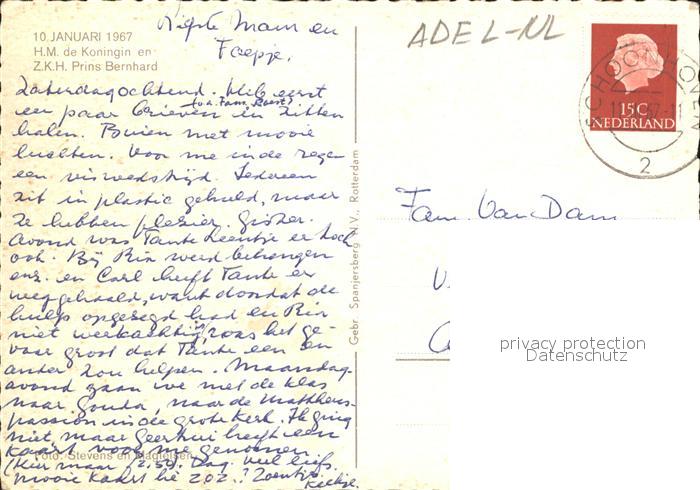 10. JANUARI 1967
H.M. de Koningin en
Z.K.H. Prins Bernhard
Liefste Mam en
Faepje,
Zaterdagochtend. Heb eerst
een paar brieven in zitten
(o.a. Fam. Roest)
halen. Buien met mooie
luchten. Voor me in de regen
een viswedstrijd. Iedereen
zit in plastic gehuld, maar
ze hebben plezier.
avond was Tante Leentje er toch
ook. Bij Rix werd behangen
enz. en Carl heeft Tante er
weggehaald, want doordat de
hulp opgezegd had en Rix
niet weekachtig, was het ge-
vaar groot dat Tante een en
ander zou helpen. Maandag-
avond gaan we met de klas
naar Gouda, naar de Mattheus-
passion in de grote kerk. Ik ging
niet, maar Geerhui heeft een
kaart voor me genomen
(Hier maar f 2.50). Dag. Veel liefs.
mooie kaart hè zoz.? Zoentjes
Keetje.
Foto: Stevens en Magielsen
Gebr. Spanjersberg N.V., Rotterdam
ADEL-NL
15 C
NEDERLAND
SCHOONHOVEN
2
Fam. Van Dam
privacy protection
Datenschutz